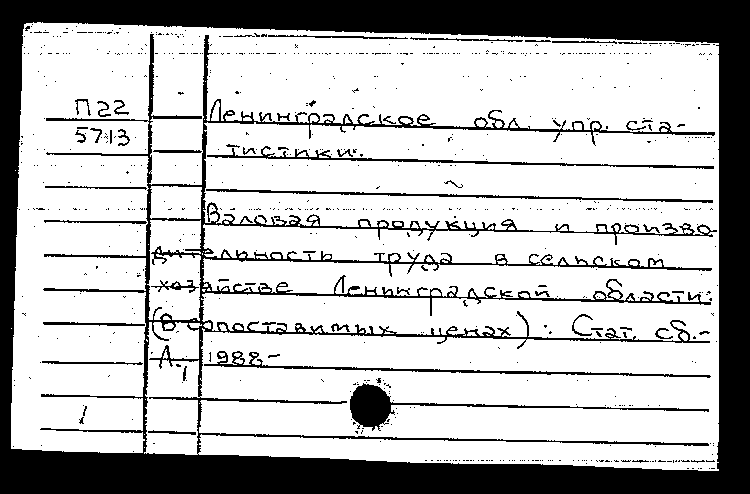 П22 Ленинградское обл. упр. ста-
5713 тистики.
Валовая продукция и произво-
дительность труда в сельском
хозяйстве Ленинградской области:
(в сопоставимых ценах): Стат. сб.-
Л., 1988.-
1